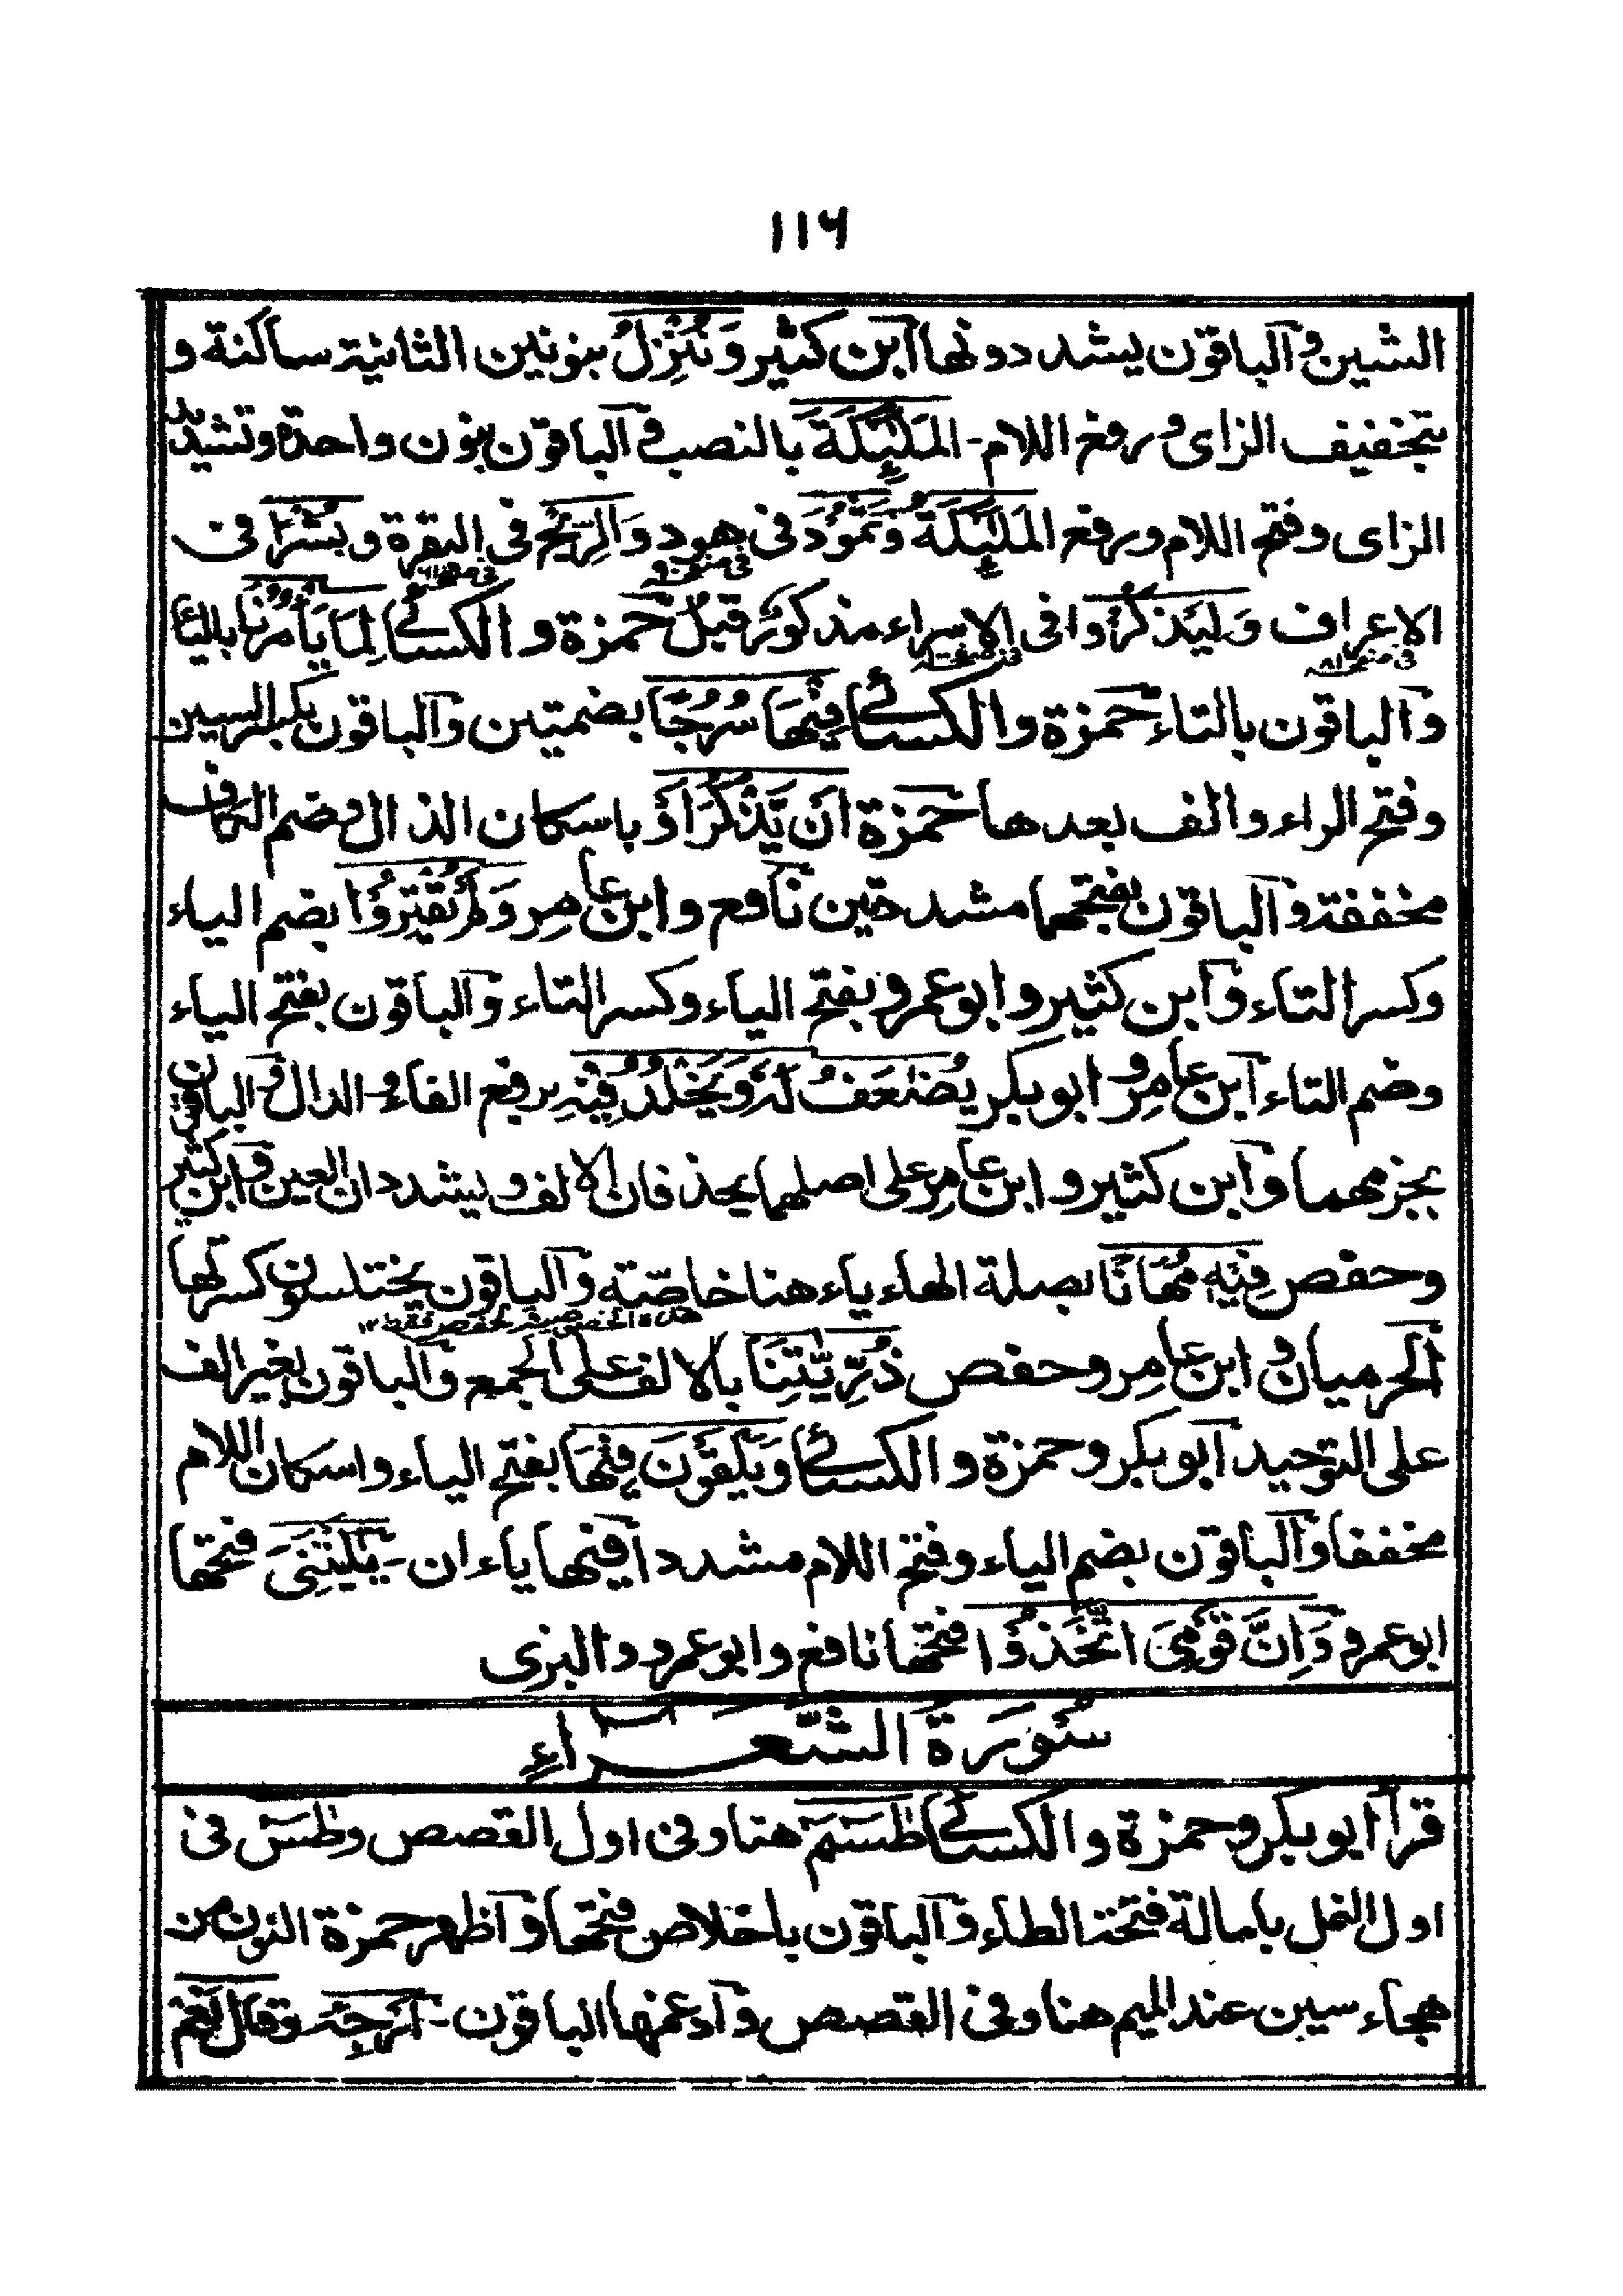 ١١٦
الشين والباقون يشددونها ابن كثير وَنُنْزِلُ بنونين الثانية ساكنة و
تخفيف الزاى ورفع اللام - المَلٰٓئِكَةَ بالنصب والباقون بنون واحدة وتشديد
الزاى وفتح اللام ورفع المَلٰٓئِكَةُ وَثَمُوْدَ فى هود وَالرِّيٰحَ فى البقرة وبُشْرًا فى
الاعراف وَلِيَذَّكَّرُوا فى الاسراء مذكور قبل حمزة والكسائى لِمَا يَأْمُرُنَا بالياء
والباقون بالتاء حمزة والكسائى فِيْهَا سُرُجًا بضمتين والباقون بكسر السين
وفتح الراء والف بعدها حمزة اَنْ يَّذْكُرَ اَوْ باسكان الذال وضم الكاف
مخففة والباقون بفتحهما مشددتين نافع وابن عامر وَلَمْ يُقْتِرُوْا بضم الياء
وكسر التاء وابن كثير وابو عمرو بفتح الياء وكسر التاء والباقون بفتح الياء
وضم التاء ابن عامر وابو بكر يُضٰعَفُ لَهٗ وَيَخْلُدُ فِيْهٖ برفع الفاء والدال والباقون
بجزمهما وابن كثير وابن عامر على اصلهما يحذفان الالف ويشددان العين وابن كثير
وحفص فِيْهٖ مُهَانًا بصلة الهاء ياء هنا خاصّة والباقون يختلسون كسرتها
الحرميان وابن عامر وحفص ذُرِّيّٰتِنَا بالالف على الجمع والباقون بغير الف
على التوحيد ابو بكر وحمزة والكسائى وَيَلْقَوْنَ فِيْهَا بفتح الياء واسكان اللام
مخففا والباقون بضم الياء وفتح اللام مشددا فيها ياءان - يٰلَيْتَنِىَ فتحها
ابو عمرو وَاِنَّ قَوْمِىَ اتَّخَذُوْا فتحها نافع وابو عمرو والبزى
سُوْرَةُ الشُّعَرَاءِ
قرأ ابو بكر وحمزة والكسائى طٰسٓمٓ هنا وفى اول القصص وطٰسٓ فى
اول النمل بامالة فتحة الطاء والباقون باخلاص فتحها واظهر حمزة النون من
هجاء سين عند الميم هنا وفى القصص وادغمها الباقون - اَرْجِهْ وقال نَعَمْ